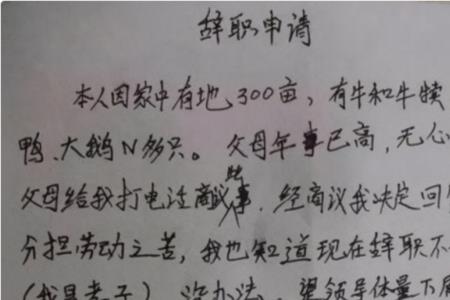 辞职申请
本人因家中有地300亩，有牛和牛犊
鸭、大鹅N多只。父母年事已高，无心
父母给我打电话商议此事，经商议我决定回
分担劳动之苦，我也知道现在辞职不
(我是孝子)，没办法，望领导体量下属